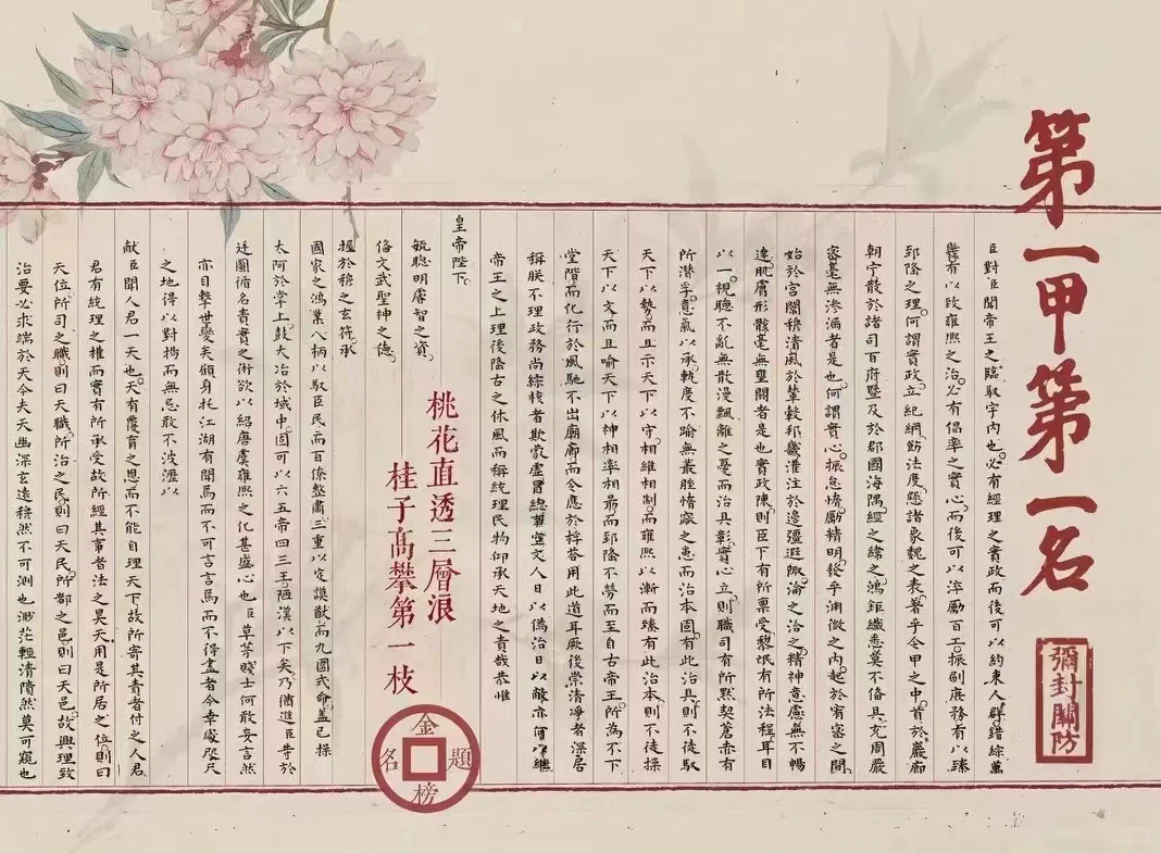 第一甲第一名
彌封關防
臣對臣聞帝王之臨馭宇內也必有經理之實政而後可以約束人群錯綜萬
幾有以致雍熙之治必有倡率之實心而後可以淬勵百工振刷庶務有以臻
郅隆之理何謂實政立紀綱飭法度懸諸象魏之表著乎令甲之中首於巖廊
朝宁散於諸司百府暨及於郡國海隅經之緯之鴻鉅纖悉莫不俻具充周嚴
密毫無滲漏者是也何謂實心振怠惰勵精明發乎淵微之內起於宥密之間
始於宮闈穆清風於輦轂邦畿灌注於邊疆遐陬淪之洽之精神意慮無不暢
達肌膚形骸毫無壅閼者是也實政陳則臣下有所稟受黎氓有所法程耳目
以一視聽不亂無散漫飄離之憂而治具彰實心立則職司有所默契蒼赤有
所潛孚意氣以承軌度不踰無叢脞惰窳之患而治本固有此治具則不徒馭
天下以勢而且示天下以守相維相制而雍熙以漸而臻有此治本則不徒操
天下以文而且喻天下以神相率相勖而郅隆不勞而至自古帝王所為不下
堂階而化行於風馳不出廟廊而令應於桴答用此道耳厥後崇清淨者深居
稱朕不理政務尚綜核者欺蒙虛冒總事空文人日以偽治日以敝亦何以繼
帝王之上理後隆古之休風而稱統理民物仰承天地之責哉恭惟
皇帝陛下
毓聰明睿智之資
俻文武聖神之德
握於穆之玄符承
國家之鴻業八柄以馭臣民而百僚整肅三重以定謨猷而九圍式命蓋已操
太阿於掌上鼓大冶於域中固可以六五帝四三王陋漢以下矣乃猶進臣等於
廷圖循名責實之術欲以紹唐虞雍熙之化甚盛心也臣草茅賤士何敢妄言然
亦目擊世變矣顧身托江湖有聞焉而不可言言焉而不得盡者今幸處咫尺
之地得以對揚而無忌敢不披瀝以
獻臣聞人君一天也天有覆育之恩而不能自理天下故所寄其責者付之人君
君有統理之權而實有所承受故所經其事者法之昊天用是所居之位則曰
天位所司之職則曰天職所治之民則曰天民所都之邑則曰天邑故興理致
治要必求端於天今夫天幽深玄遠穆然不可測也渺茫輕清隤然莫可窺也
桃花直透三層浪
桂子高攀第一枝
金榜題名